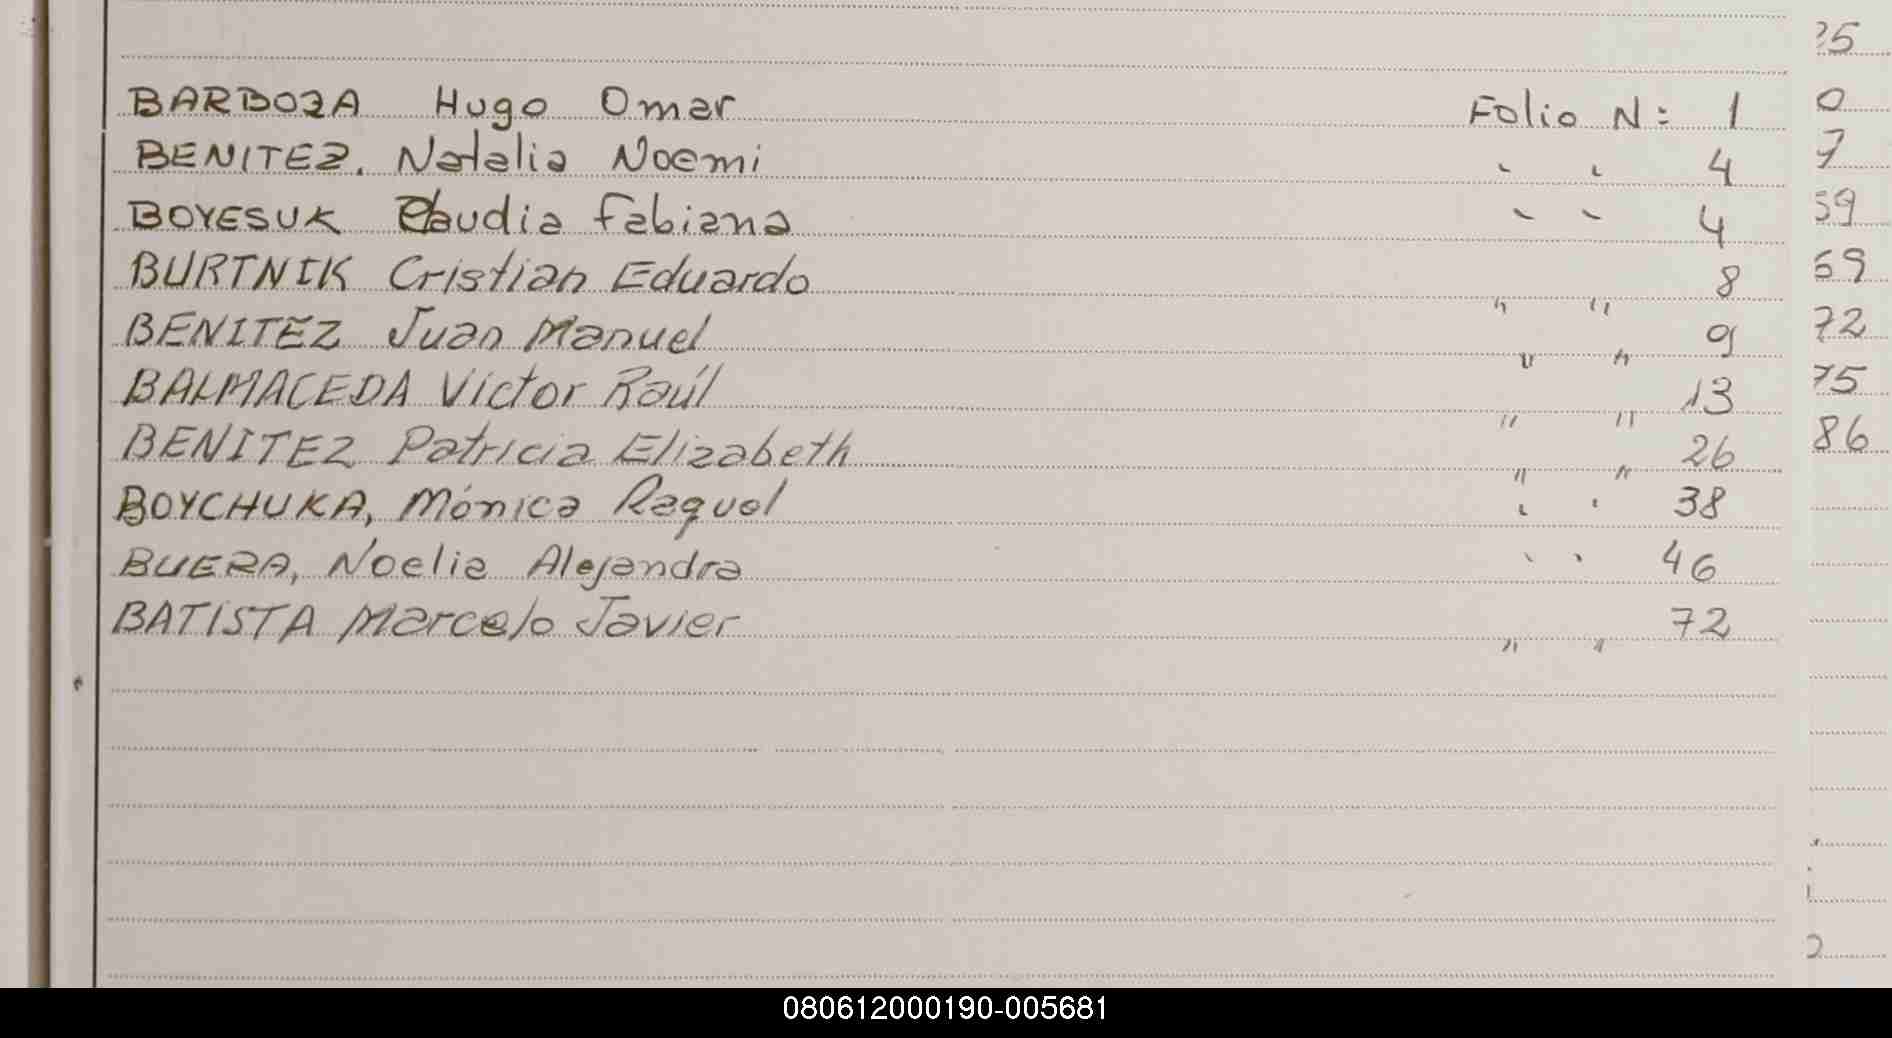 BARBOZA Hugo Omar Folio N: 1
BENITEZ, Natalia Noemi " " 4
BOYESUK Claudia Fabiana " " 4
BURTNIK Cristian Eduardo " " 8
BENITEZ Juan Manuel " " 9
BALMACEDA Victor Raúl " " 13
BENITEZ Patricia Elizabeth " " 26
BOYCHUKA, Mónica Raquel " " 38
BUERA, Noelia Alejandra " " 46
BATISTA Marcelo Javier " " 72
0
7
59
69
72
75
86
080612000190-005681